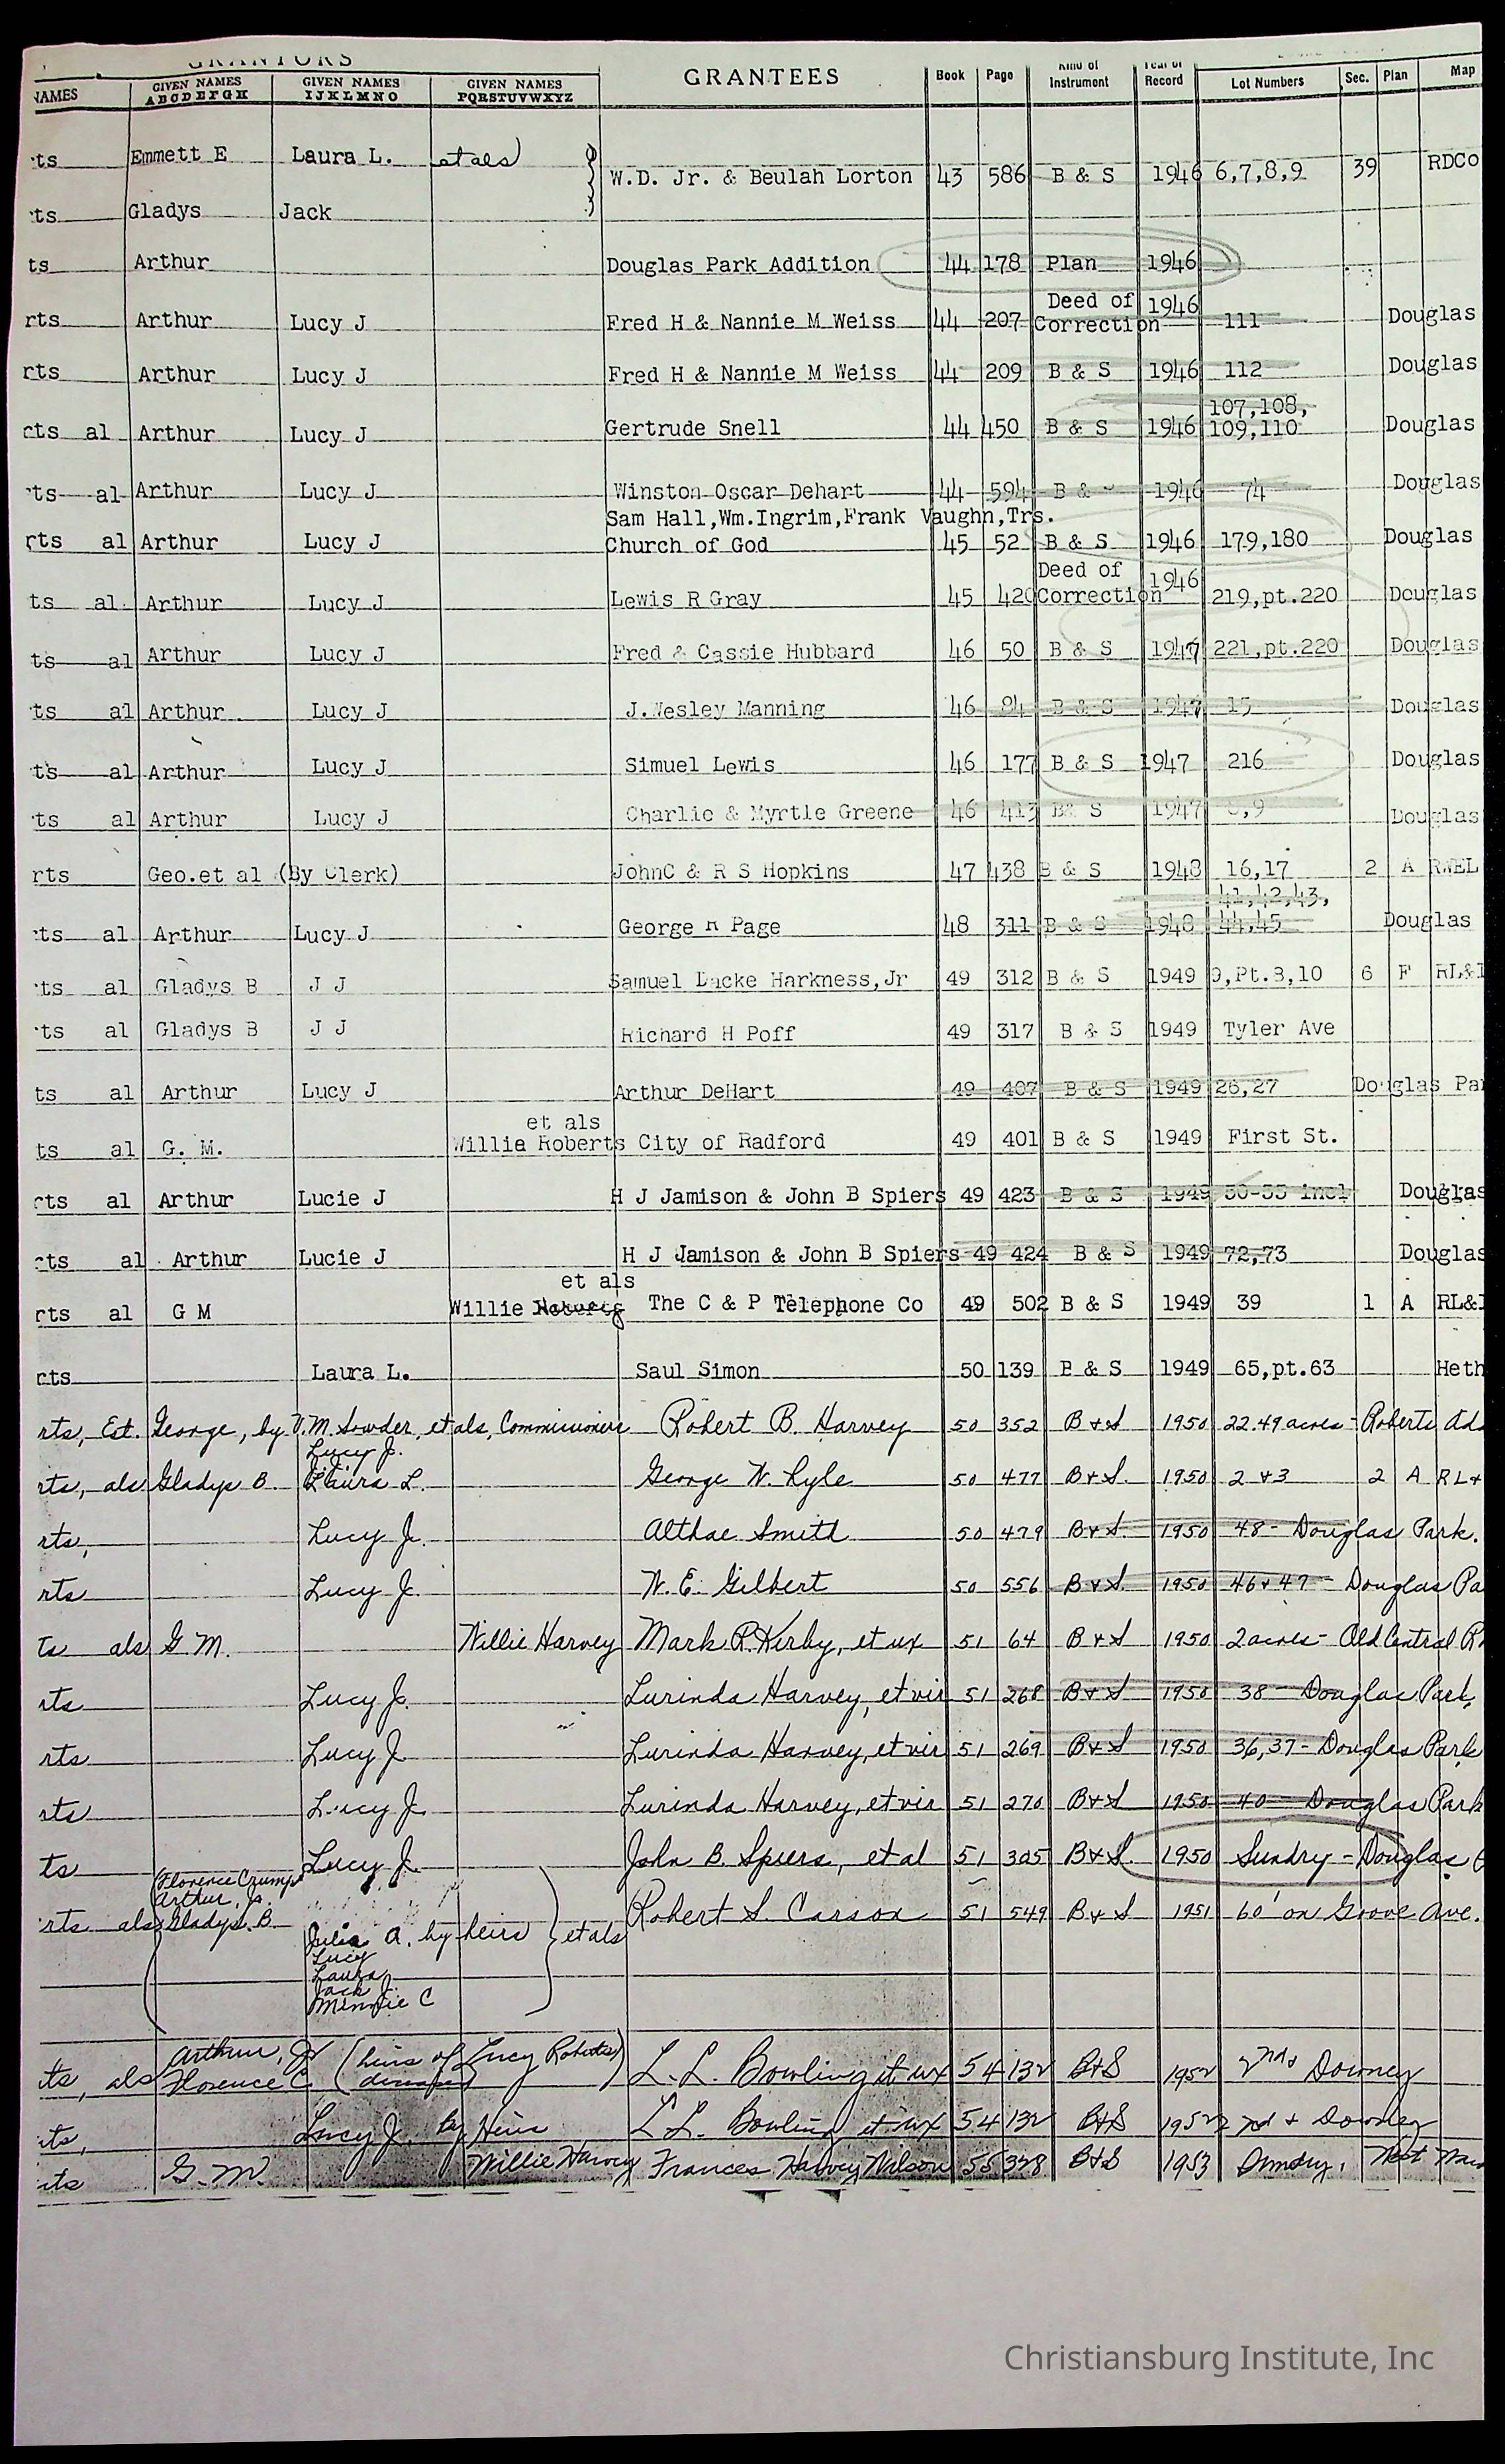 GRANTORS
NAMES GIVEN NAMES ABCDEFGH GIVEN NAMES IJKLMNO GIVEN NAMES PQRSTUVWXYZ GRANTEES Book Page Kind of Instrument Year of Record Lot Numbers Sec. Plan Map
ts Emmett E Laura L. et als W.D. Jr. & Beulah Lorton 43 586 B & S 1946 6,7,8,9 39 RDCo
ts Gladys Jack
ts Arthur Douglas Park Addition 44 178 Plan 1946
rts Arthur Lucy J Fred H & Nannie M Weiss 44 207 Deed of Correction 1946 111 Douglas
rts Arthur Lucy J Fred H & Nannie M Weiss 44 209 B & S 1946 112 Douglas
rts al Arthur Lucy J Gertrude Snell 44 450 B & S 1946 107,108, 109,110 Douglas
ts al Arthur Lucy J Winston Oscar Dehart 44 594 B & 1946 74 Douglas
Sam Hall,Wm.Ingrim,Frank Vaughn,Trs.
rts al Arthur Lucy J Church of God 45 52 B & S 1946 179,180 Douglas
ts al Arthur Lucy J Lewis R Gray 45 420 Deed of Correction 1946 219,pt.220 Douglas
ts al Arthur Lucy J Fred & Cassie Hubbard 46 50 B & S 1947 221,pt.220 Douglas
ts al Arthur Lucy J J.Wesley Manning 46 84 B & S 1947 15 Douglas
ts al Arthur Lucy J Simuel Lewis 46 177 B & S 1947 216 Douglas
ts al Arthur Lucy J Charlie & Myrtle Greene 46 413 B& S 1947 ,9 Douglas
rts Geo.et al (By Clerk) JohnC & R S Hopkins 47 438 B & S 1948 16,17 2 A
ts al Arthur Lucy J George R Page 48 311 B & S 1948 41,42,43, 44,45 Douglas
ts al Gladys B J J Samuel Lacke Harkness,Jr 49 312 B & S 1949 9,Pt.8,10 6 F RL&I
ts al Gladys B J J Richard H Poff 49 317 B & S 1949 Tyler Ave
ts al Arthur Lucy J Arthur DeHart 49 407 B & S 1949 26,27 Douglas Par
et als
ts al G. M. Willie Roberts City of Radford 49 401 B & S 1949 First St.
rts al Arthur Lucie J H J Jamison & John B Spiers 49 423 B & S 1949 50-55 incl Douglas
rts al Arthur Lucie J H J Jamison & John B Spiers 49 424 B & S 1949 72,73 Douglas
et als
rts al G M Willie Roberts The C & P Telephone Co 49 502 B & S 1949 39 1 A RL&I
rts Laura L. Saul Simon 50 139 B & S 1949 65,pt.63 Heth
rts, Est. George, by V.M. Sowder, et als, Commissioners Robert B. Harvey 50 352 B & S 1950 22.49 acres - Roberts Ad
Lucy J.
rts, als Gladys B. Laura L. George W. Lyle 50 477 B & S. 1950 2 & 3 2 A RL&
rts, Lucy J. Althae Smith 50 479 B & S. 1950 48 - Douglas Park.
rts Lucy J. W. E. Gilbert 50 556 B & S. 1950 46 & 47 - Douglas Pa
ts als G M. Willie Harvey Mark P. Kirby, et ux 51 64 B & S 1950 2 acres - Old Central R
rts Lucy J. Lurinda Harvey, et vir 51 268 B & S 1950 38 - Douglas Park,
rts Lucy J Lurinda Harvey, et vir 51 269 B & S 1950 36,37 - Douglas Park
rts Lucy J. Lurinda Harvey, et vir 51 270 B & S 1950 40 - Douglas Park
ts Lucy J. John B. Spiers, et al 51 305 B & S. 1950 Sundry - Douglas P
Florence Crump
Arthur, Jr.
rts als Gladys B. Julia A. by heirs et als Robert S. Carson 51 549 B & S 1951 60' on Grove Ave.
Lucy
Laura
Jack J.
Minnie C
Arthur, Jr (heirs of Lucy Roberts
ts, als Florence C deceased) L. L. Bowling et ux 54 132 B&S 1952 2nd & Downey
ts, Lucy J. by Heirs L L. Bowling et ux 54 132 B&S 1952 2nd & Downey
ts G. M. Willie Harvey Frances Harvey Wilson 55 328 B&S 1953 Sundry, West Main
Christiansburg Institute, Inc